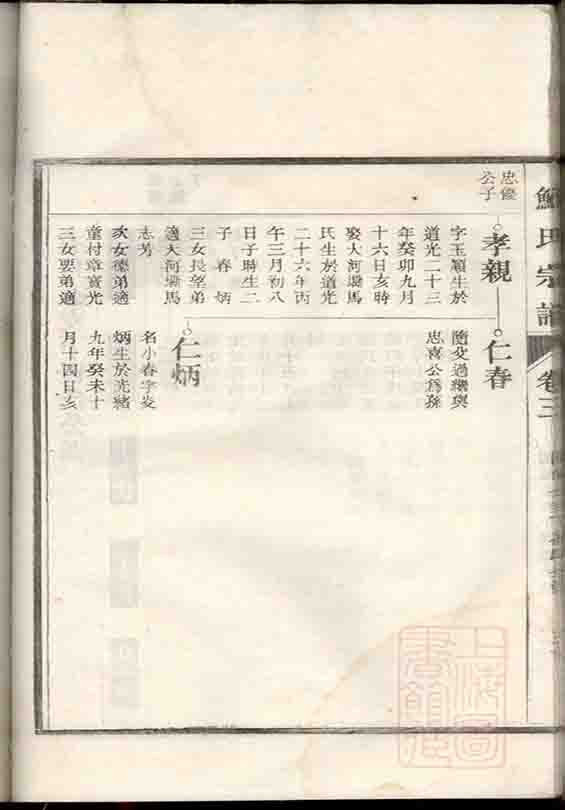 氏宗譜
卷三
忠優
公子
孝親
字玉穎生於
道光二十三
年癸卯九月
十六日亥時
娶大河壩馬
氏生於道光
二十六年丙
午三月初八
日子時生二
子春炳
三女長望弟
適大河壩馬
志芳
次女樂弟適
童村章寶光
三女要弟適
仁春
隨父過繼與
忠喜公為孫
仁炳
名小春字炎
炳生於光緒
九年癸未十
月十四日亥
上海圖
書館藏